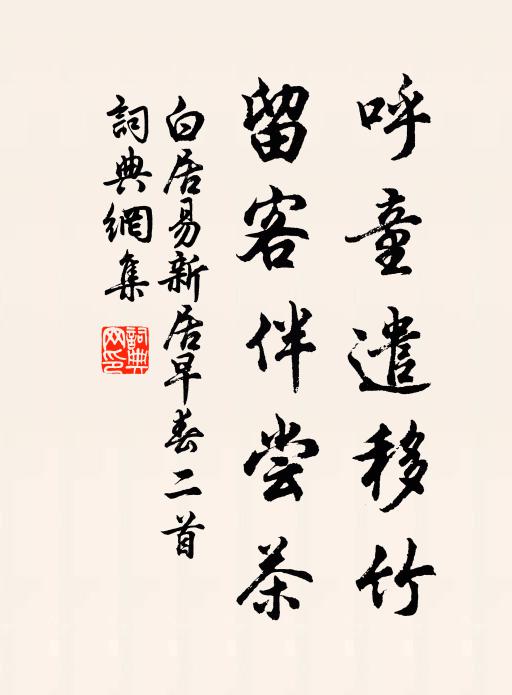 呼童遣移竹
留客伴尝茶
白居易新居早春二首
詞典網集
詞典网印